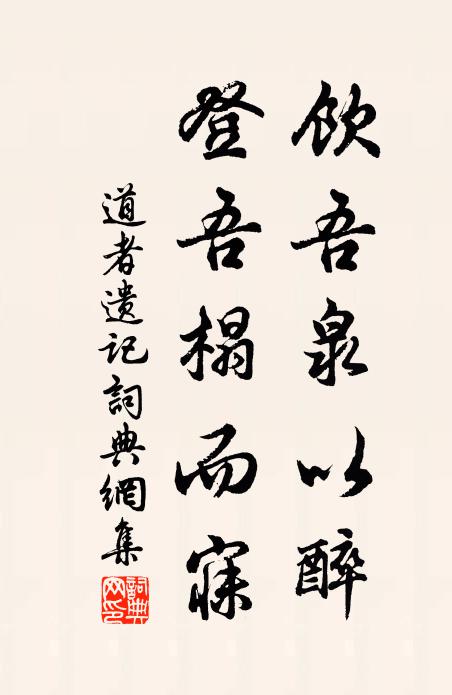 飲吾泉以醉
登吾榻而寐
道者遺記詞典網集
詞典网印